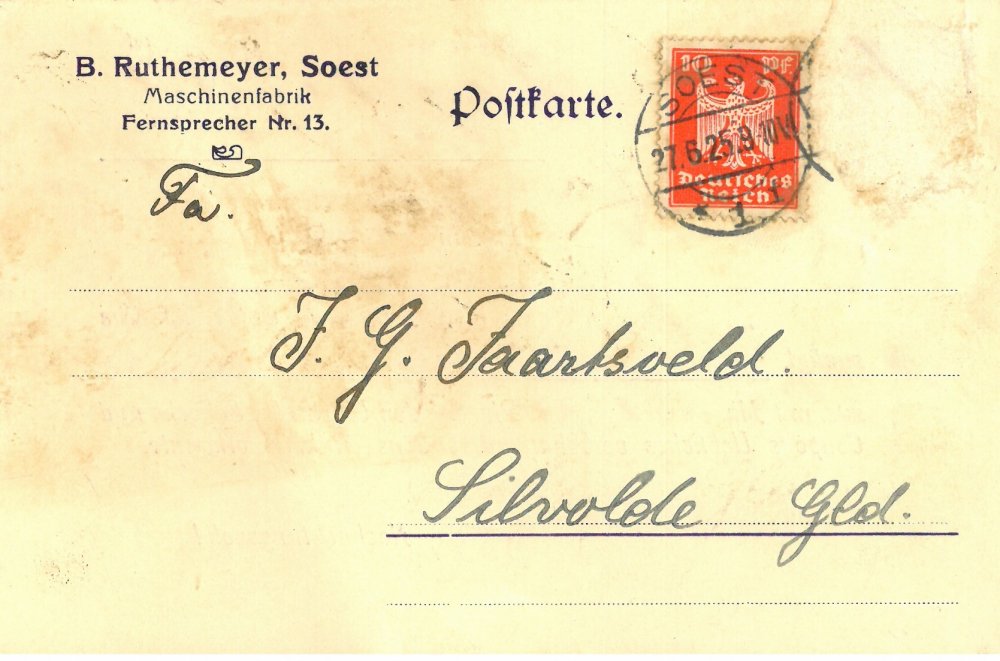 B. Ruthemeyer, Soest
Maschinenfabrik
Fernsprecher Nr. 13.
Postkarte.
10 Pf
Deutsches
Reich
SOEST
27.6.25.8-10V.
* 1 1
Fa.
J. G. Jaartsveld.
Silvolde Gld.